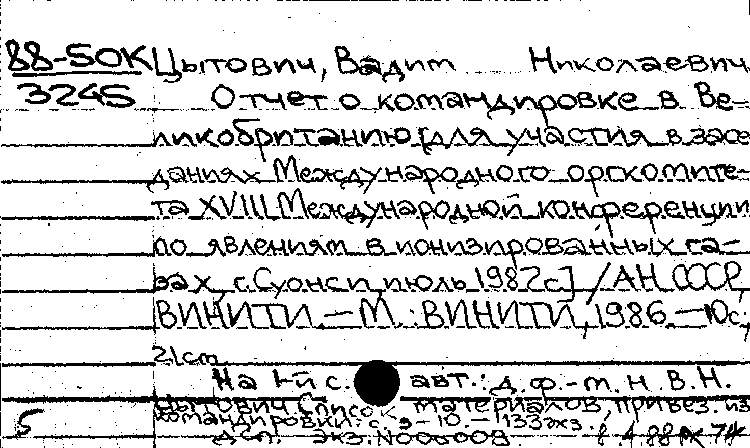 88-50К Цытович, Вадим Николаевич
3245 Отчет о командировке в Ве-
ликобританию [для участия в засе
даниях Международного оргкомите-
та XVIII Международной конференции
по явлениям в ионизированных га-
зах, г. Суонси, июль 1987с] / АН СССР,
ВИНИТИ. — М.: ВИНИТИ, 1986. — 10с.;
21cm
На 1-й с. авт.: д.ф.-м.н В.Н.
Цытович Список материалов, привез. из
командировки: с. 9-10. — 133экз.
5 ДСП. экз. N000009 1.4.88